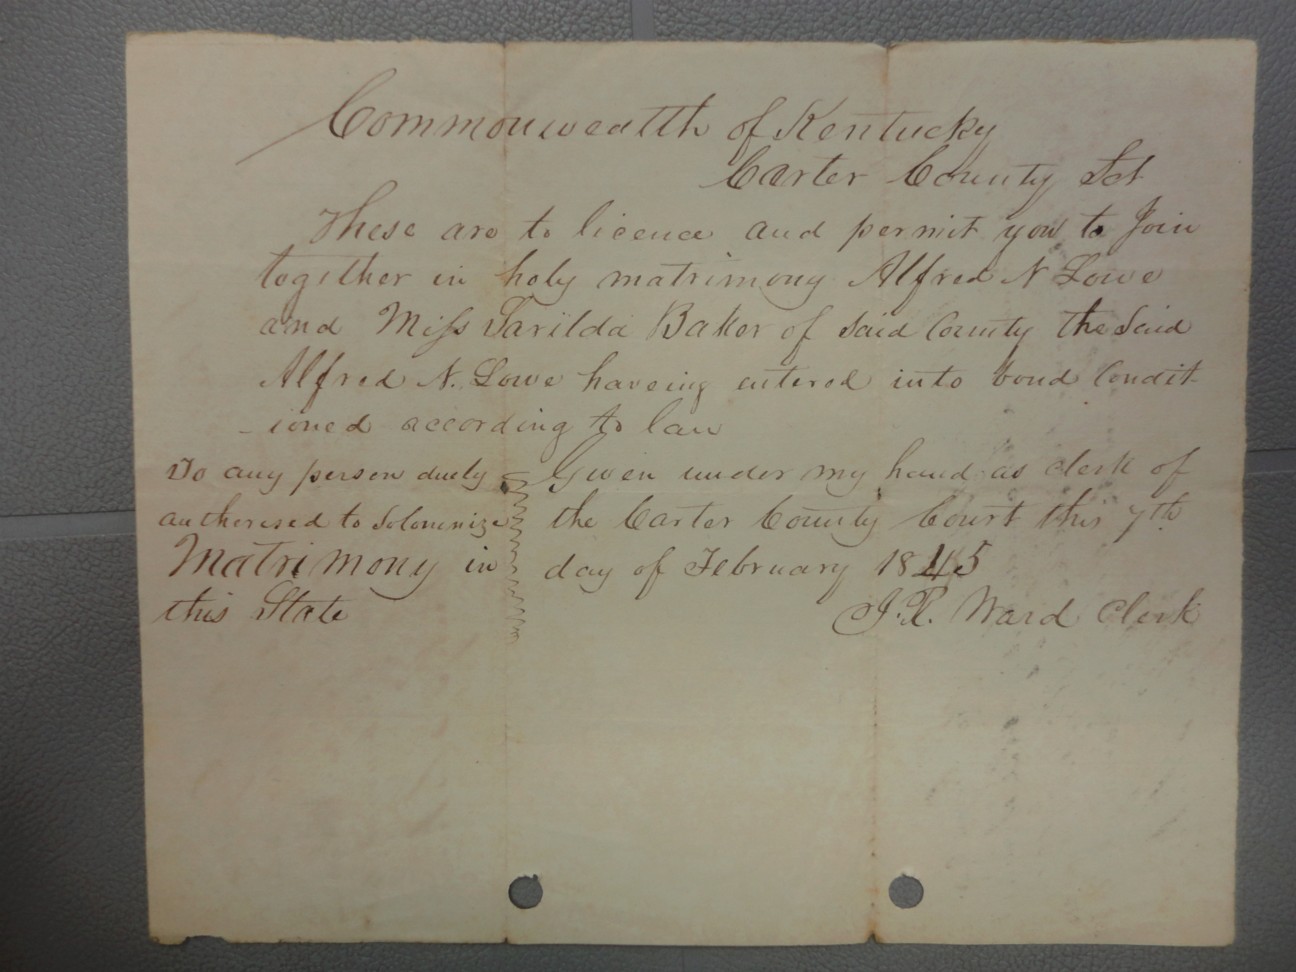 Commonwealth of Kentucky
Carter County Sct
These are to licence and permit you to Join
together in holy matrimony Alfred N Lowe
and Miss Sarilda Baker of said County the Said
Alfred N. Lowe haveing entered into bond Condit-
-ioned according to law
To any person duely
autherised to Solominize
Matrimony in
this State
Given under my hand as clerk of
the Carter County Court this 7th
day of February 1845
J. R. Ward Clerk